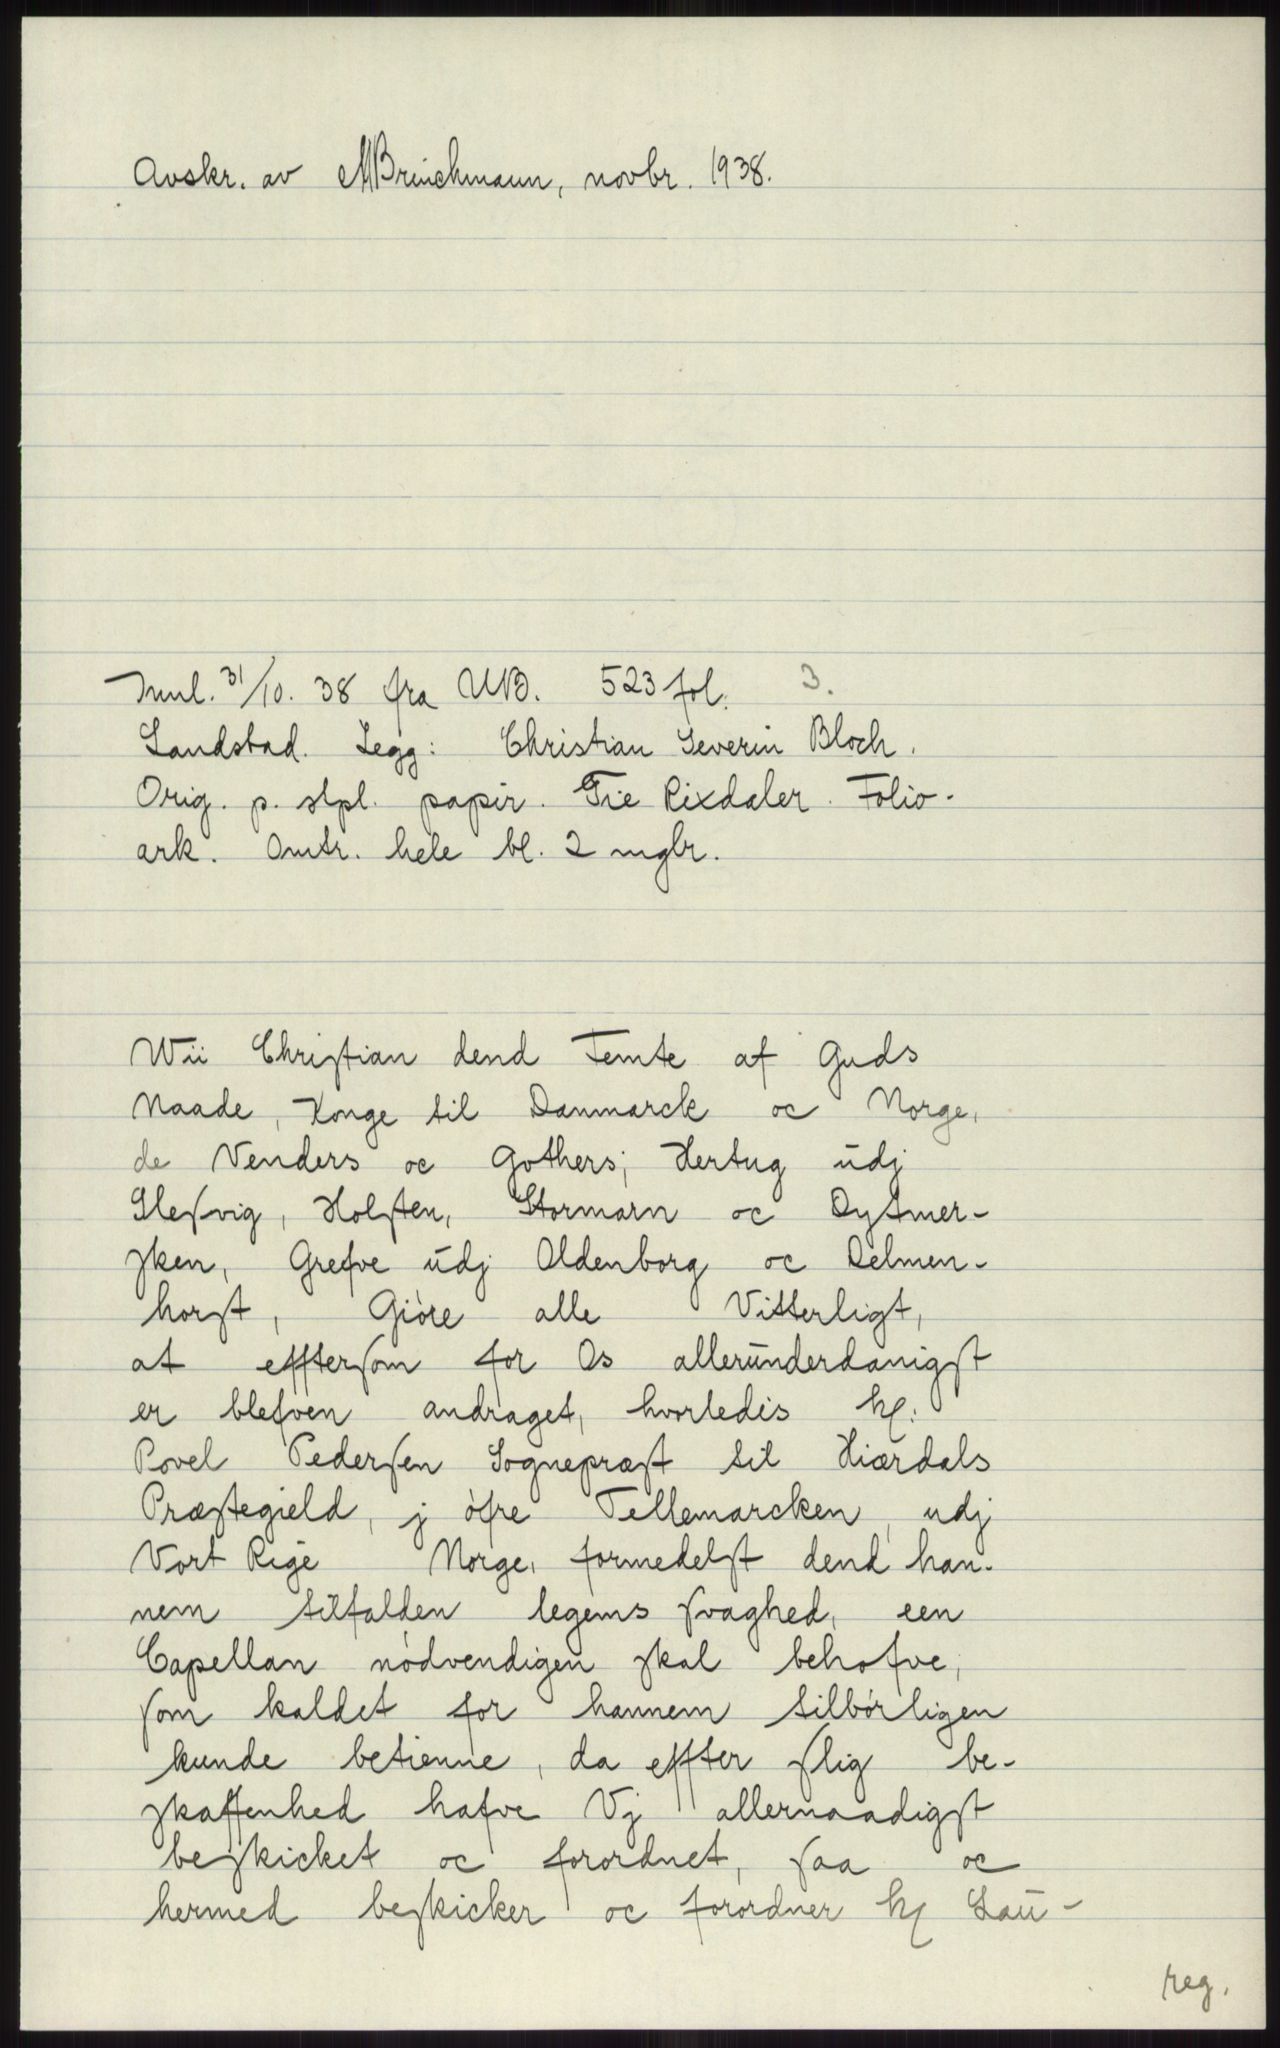 Avskr. av MBrinchmann, novbr. 1938.
Innl. 31/10. 38 fra UB. 523 fol. 3.
Landstad. Legg: Christian Severin Bloch.
Orig. p. stpl. papir. Tie Rixdaler. Folio-
ark. Omtr. hele bl. 2 mglr.
Wii Christian dend Femte af Guds
Naade, Konge til Danmarck oc Norge,
de Venders oc Gothers; Hertug udj
Slesvig, Holsten, Stormarn oc Dytmer-
sken, Grefve udj Oldenborg oc Delmen-
horst, Giöre alle Vitterligt,
at efftersom for Os allerunderdanigst
er blefven andraget, hvorledis Hr:
Povel Pedersen Sognepræst til Hiærdals
Præstegield, j öfre Tellemarcken, udj
Vort Rige Norge, formedelst dend han-
nem tilfalden legems svaghed, een
Capellan nödvendigen skal behofve,
som kaldet for hannem tilbörligen
kunde betienne, da effter slig be-
skaffenhed hafve Vj allernaadigst
beskicket oc forordnet, saa oc
hermed beskicker oc forordner Hr Lau-
reg.